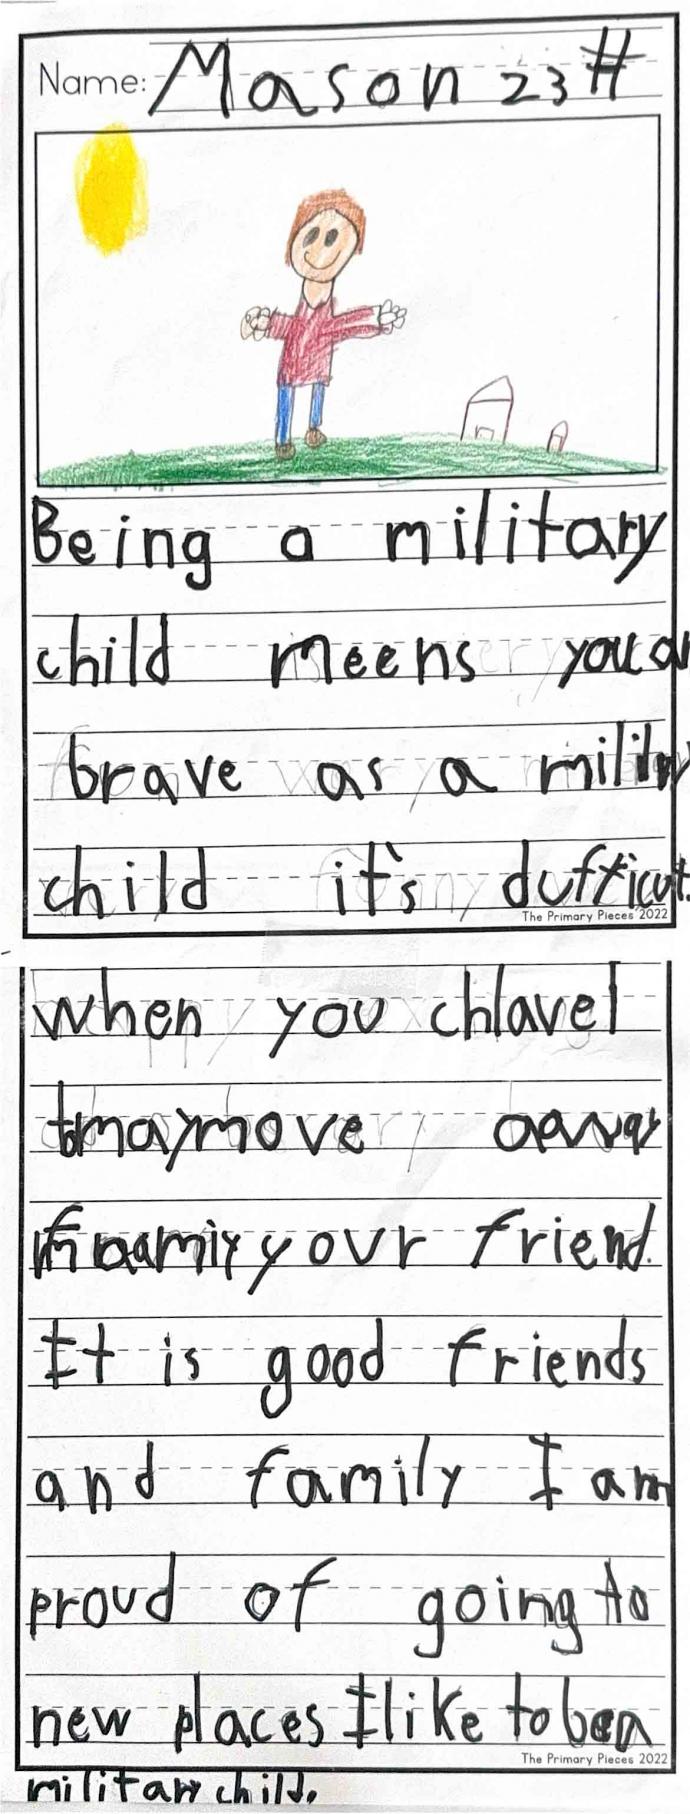 Name: Mason 23#
Being a military
child meens you ar
brave as a military
child it's dufficut.
The Primary Pieces 2022
when you chlavel
move
your friend.
It is good friends
and family I am
proud of going to
new places I like to be a
The Primary Pieces 2022
military child.